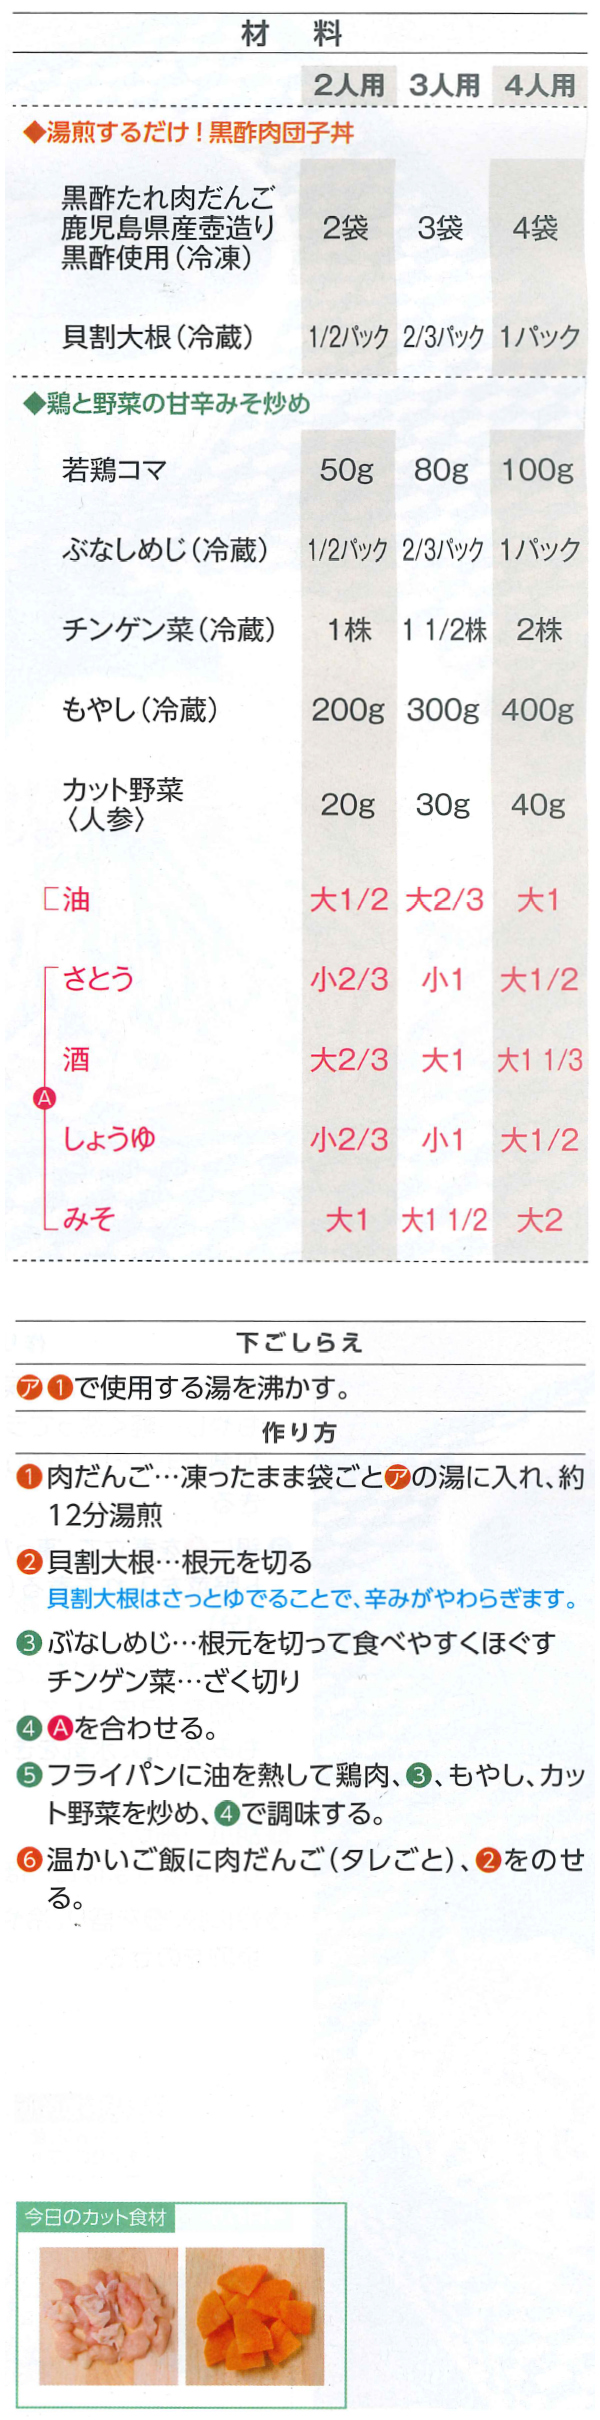 材　料
2人用 3人用 4人用
◆湯煎するだけ！黒酢肉団子丼
黒酢たれ肉だんご
鹿児島県産壺造り 2袋 3袋 4袋
黒酢使用（冷凍）
貝割大根（冷蔵） 1/2パック 2/3パック 1パック
◆鶏と野菜の甘辛みそ炒め
若鶏コマ 50g 80g 100g
ぶなしめじ（冷蔵） 1/2パック 2/3パック 1パック
チンゲン菜（冷蔵） 1株 1 1/2株 2株
もやし（冷蔵） 200g 300g 400g
カット野菜
〈人参〉 20g 30g 40g
油 大1/2 大2/3 大1
さとう 小2/3 小1 大1/2
酒 大2/3 大1 大1 1/3
A
しょうゆ 小2/3 小1 大1/2
みそ 大1 大1 1/2 大2
下ごしらえ
ア1で使用する湯を沸かす。
作り方
1 肉だんご…凍ったまま袋ごとアの湯に入れ、約
12分湯煎
2 貝割大根…根元を切る
貝割大根はさっとゆでることで、辛みがやわらぎます。
3 ぶなしめじ…根元を切って食べやすくほぐす
チンゲン菜…ざく切り
4 Aを合わせる。
5 フライパンに油を熱して鶏肉、3、もやし、カッ
ト野菜を炒め、4で調味する。
6 温かいご飯に肉だんご（タレごと）、2をのせ
る。
今日のカット食材